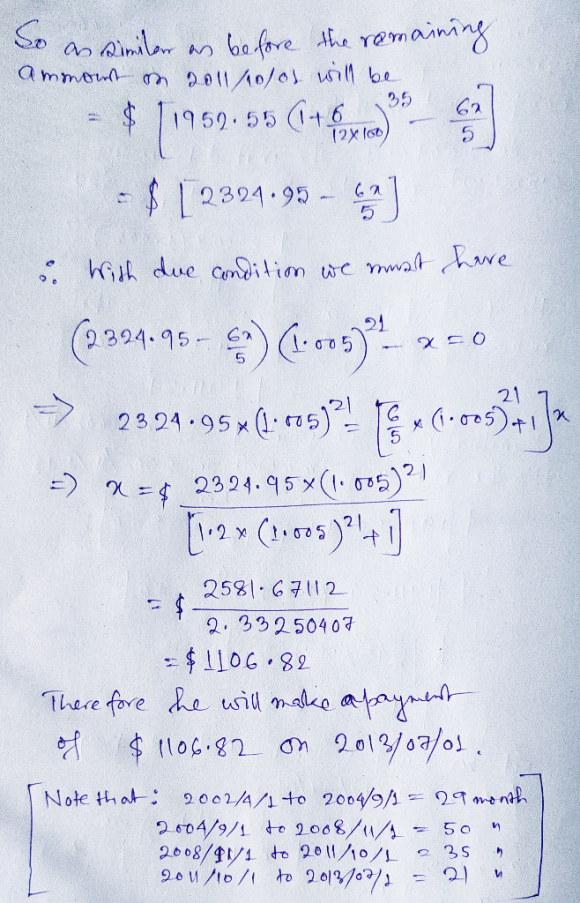 So as similar as before the remaining
ammount on 2011/10/01 will be
= $ [1952.55 (1+6/12×100)^35 - 6x/5]
= $ [2324.95 - 6x/5]
∴ With due condition we must have
(2324.95 - 6x/5) (1.005)^21 - x = 0
⇒ 2324.95 × (1.005)^21 = [6/5 × (1.005)^21 + 1] x
⇒ x = $ 2324.95 × (1.005)^21 / [1.2 × (1.005)^21 + 1]
= $ 2581.67112 / 2.33250407
= $ 1106.82
Therefore he will make a payment
of $ 1106.82 on 2013/07/01.
[Note that: 2002/4/1 to 2004/9/1 = 29 month
2004/9/1 to 2008/11/1 = 50 "
2008/11/1 to 2011/10/1 = 35 "
2011/10/1 to 2013/07/1 = 21 "]